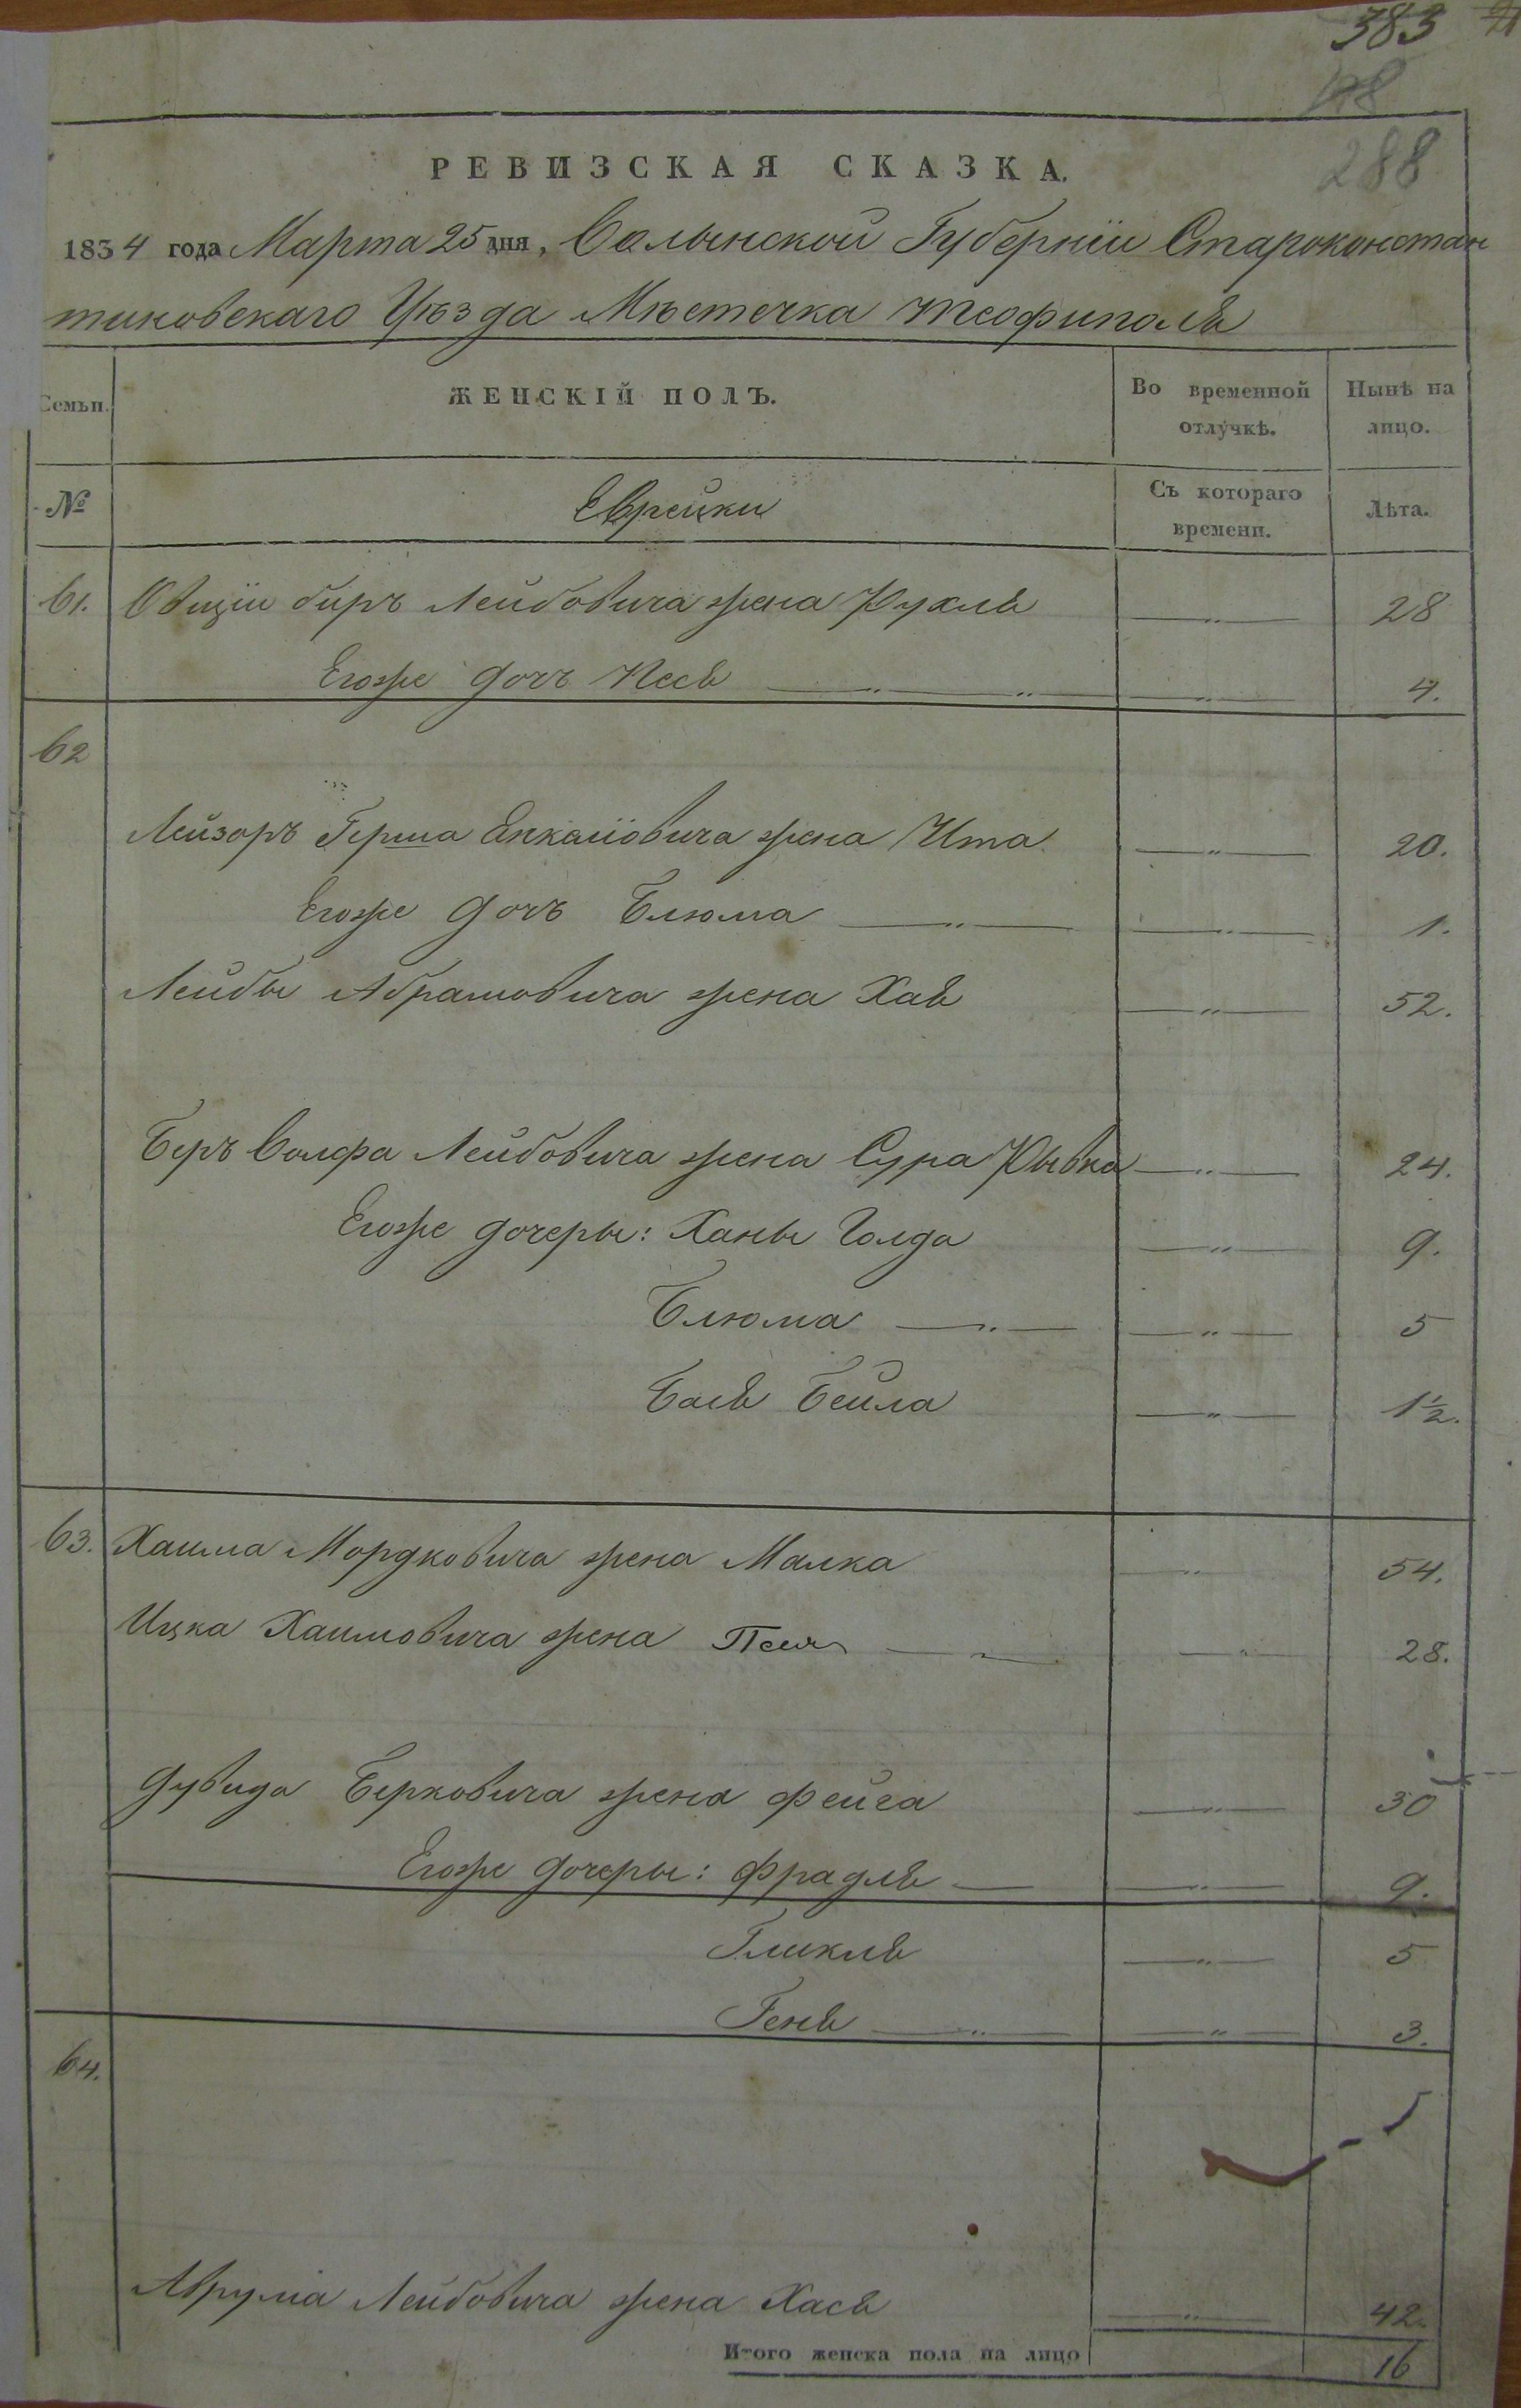 383
288
РЕВИЗСКАЯ СКАЗКА.
1834 года Марта 25 дня, Волынской Губерніи Староконстан
тиновскаго Уѣзда Мѣстечка Теофиполя
Семьи. ЖЕНСКІЙ ПОЛЪ. Во временной отлучкѣ. Нынѣ на лицо.
№ Еврейки Съ котораго времени. Лѣта.
61. Овшіи биръ Лейбовича жена Рухля 28
Егоже дочь Неся 4.
62
Лейзоръ Герша Янкаліовича жена Ита 20.
Егоже дочь Блюма 1.
Лейбы Абрамовича жена Хая 52.
Беръ Волфа Лейбовича жена Сура Рывка 24.
Егоже дочеры: Ханы Голда 9.
Блюма 5
Бася Бейла 1½.
63. Хаима Мордковича жена Малка 54.
Ицка Хаимовича жена 28.
Дувида Берковича жена Фейга 30
Егоже дочеры: Фрадля 9.
Гликля 5
Геня 3.
64.
Аврума Лейбовича жена Хася 42.
Итого женска пола на лицо 16